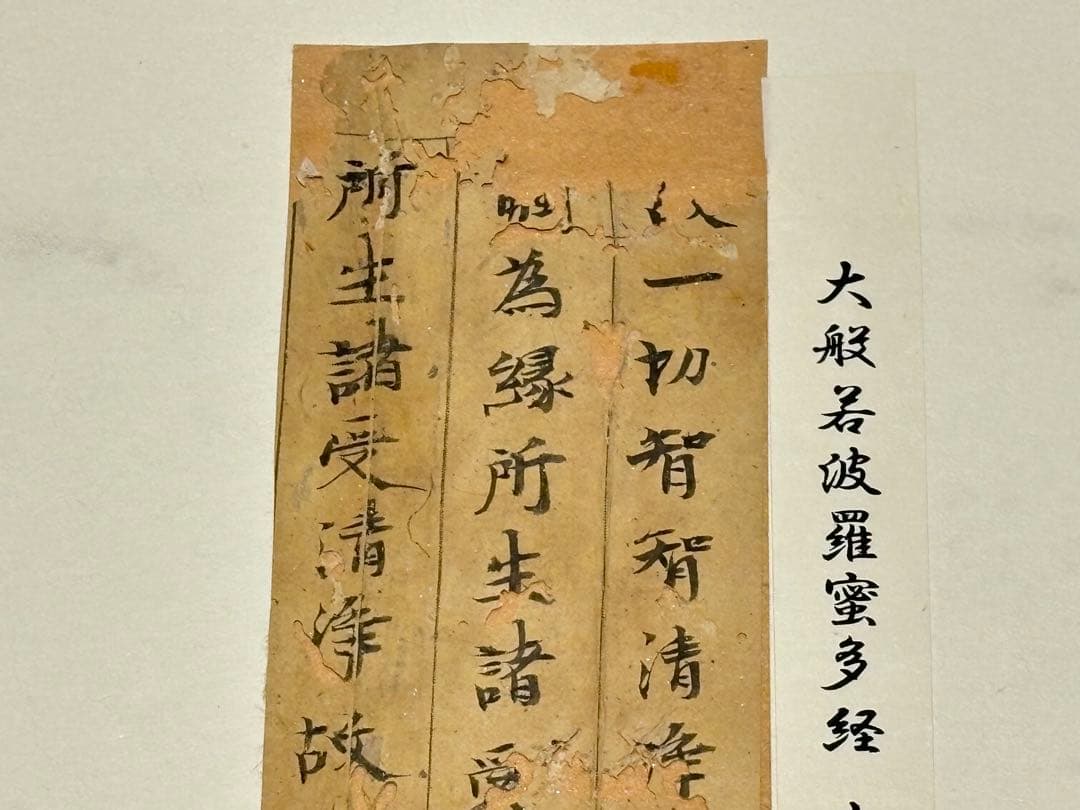 大般若波羅蜜多経
一切智智清淨
為縁所生諸受
所生諸受清淨故